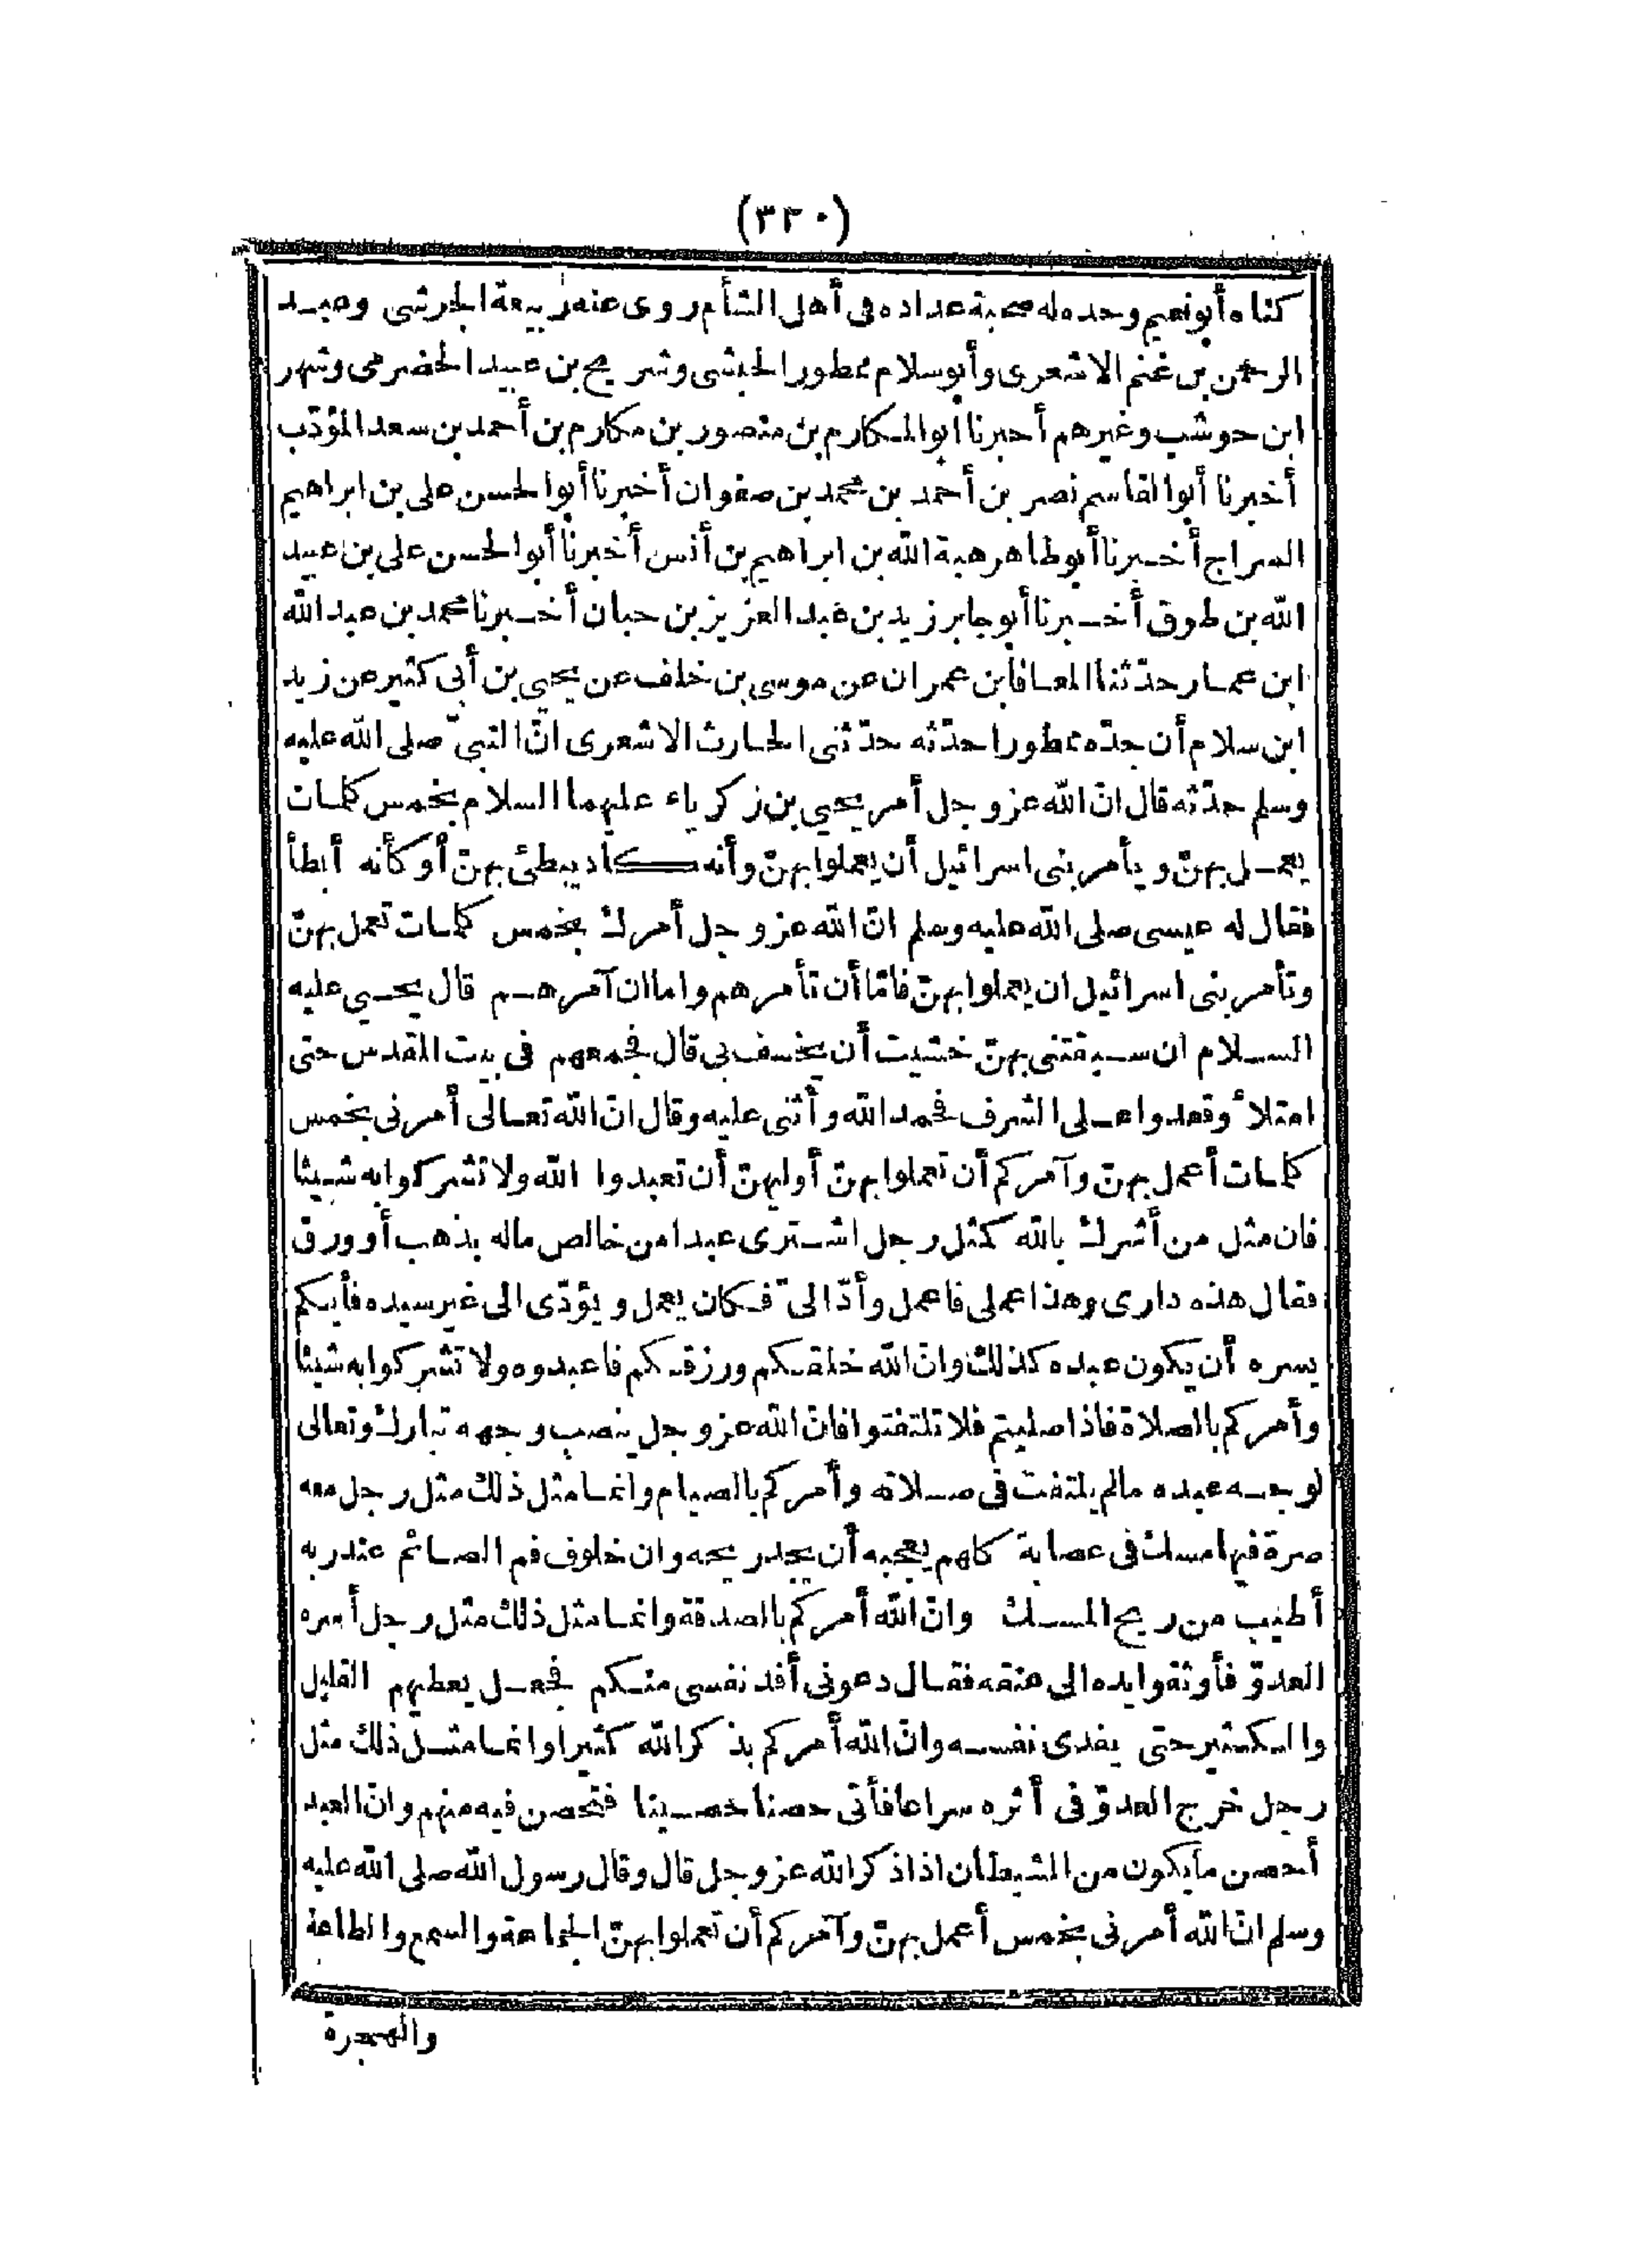 (٣٢٠)
كناه أبو نعيم وحده له صحبة عداده فى أهل الشأم روى عنه ربيعة الجرشى وعبد
الرحمن بن غنم الاشعرى وأبو سلام ممطور الحبشى وشريح بن عبيد الحضرمى وشهر
ابن حوشب وغيرهم أخبرنا أبو المكارم بن منصور بن مكارم بن أحمد بن سعد المؤدّب
أخبرنا أبو القاسم نصر بن أحمد بن محمد بن صفوان أخبرنا أبو الحسن على بن ابراهيم
السراج أخبرنا أبو طاهر هبة الله بن ابراهيم بن أنس أخبرنا أبو الحسن على بن عبيد
الله بن طوق أخبرنا أبو جابر زيد بن عبد العزيز بن حبان أخبرنا محمد بن عبد الله
ابن عمار حدّثنا المعافا بن عمران عن موسى بن خلف عن يحيى بن أبى كثير عن زيد
ابن سلام أن جدّه ممطورا حدّثه حدّثنى الحارث الاشعرى انّ النبىّ صلى الله عليه
وسلم حدّثه قال انّ الله عز وجل أمر يحيى بن زكرياء عليهما السلام بخمس كلمات
يعمل بهنّ ويأمر بنى اسرائيل أن يعملوا بهنّ وأنه كاد يبطئ بهنّ أو كأنه أبطأ
فقال له عيسى صلى الله عليه وسلم انّ الله عز وجل أمرك بخمس كلمات تعمل بهنّ
وتأمر بنى اسرائيل ان يعملوا بهنّ فامّا أن تأمرهم واما ان آمرهم قال يحيى عليه
السلام ان سبقتنى بهنّ خشيت أن يخسف بى قال فجمعهم فى بيت المقدس حتى
امتلأ وقعدوا على الشرف فحمد الله وأثنى عليه وقال انّ الله تعالى أمرنى بخمس
كلمات أعمل بهنّ وآمركم أن تعملوا بهنّ أولهنّ أن تعبدوا الله ولا تشركوا به شيئا
فان مثل من أشرك بالله كمثل رجل اشترى عبدا من خالص ماله بذهب أو ورق
فقال هذه دارى وهذا عملى فاعمل وأدّ الىّ فكان يعمل ويؤدّى الى غير سيده فأيكم
يسره أن يكون عبده كذلك وانّ الله خلقكم ورزقكم فاعبدوه ولا تشركوا به شيئا
وأمركم بالصلاة فاذا صليتم فلا تلتفتوا فانّ الله عز وجل ينصب وجهه تبارك وتعالى
لوجه عبده مالم يلتفت فى صلاته وأمركم بالصيام وانما مثل ذلك مثل رجل معه
صرة فيها مسك فى عصابة كلهم يعجبه أن يجد ريحه وان خلوف فم الصائم عند ربه
أطيب من ريح المسك وانّ الله أمركم بالصدقة وانما مثل ذلك مثل رجل أسره
العدوّ فأوثقوا يده الى عنقه فقال دعونى أفد نفسى منكم فجعل يعطيهم القليل
والكثير حتى يفدى نفسه وانّ الله أمركم بذكر الله كثيرا وانما مثل ذلك مثل
رجل خرج العدوّ فى أثره سراعا فأتى حصنا حصينا فتحصن فيه منهم وانّ العبد
أحصن ما يكون من الشيطان اذا ذكر الله عز وجل قال وقال رسول الله صلى الله عليه
وسلم انّ الله أمرنى بخمس أعمل بهنّ وآمركم أن تعملوا بهنّ الجماعة والسمع والطاعة
والهجرة